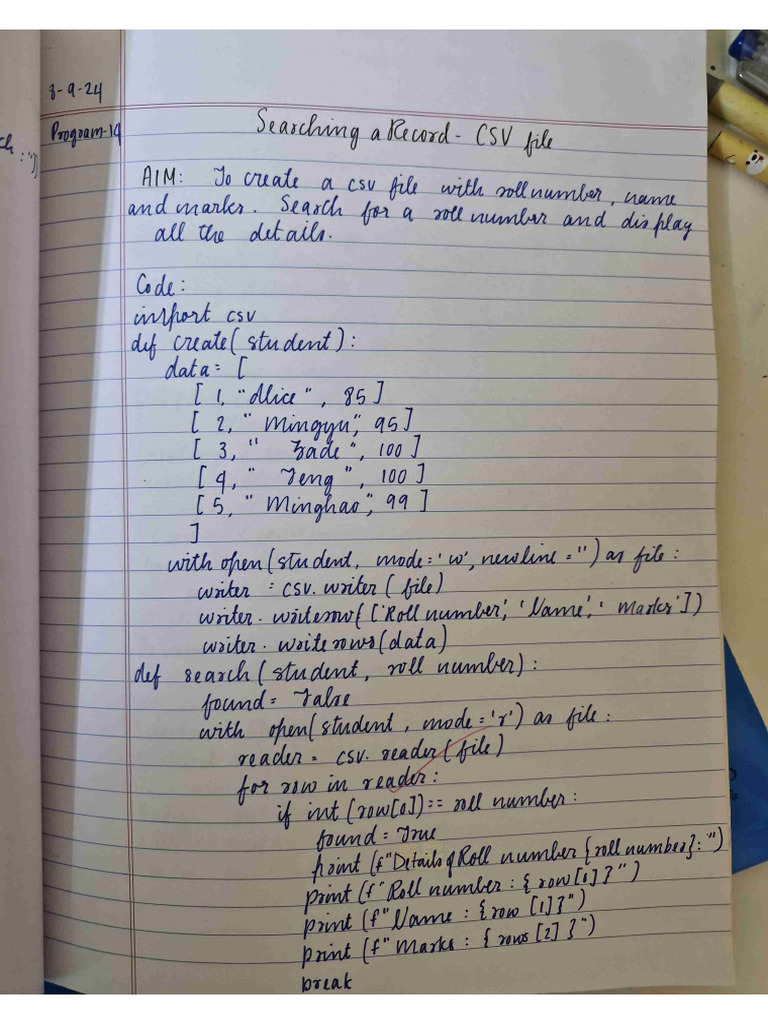 8-9-24
Program-14
Searching a Record - CSV file
AIM: To create a csv file with roll number, name
and marks. Search for a roll number and display
all the details.
Code:
import csv
def create( student):
data= [
[ 1, "Alice", 85]
[ 2, " Mingyu", 95]
[ 3, " Zade", 100]
[ 4, " Jeng ", 100]
[ 5, " Minghao", 99 ]
]
with open(student, mode='w', newline='') as file:
writer = csv.writer( file)
writer. writerow( ['Roll number', 'Name', ' Marks'])
writer. writerows(data)
def search( student, roll number):
found= False
with open(student, mode='r') as file:
reader= csv. reader( file)
for row in reader:
if int (row[0])== roll number:
found = True
print (f"Details of Roll number {roll number}:")
print (f" Roll number : { row[1]}")
print (f" Name : {row [1]}")
print (f" Marks : { rows [2] }")
break